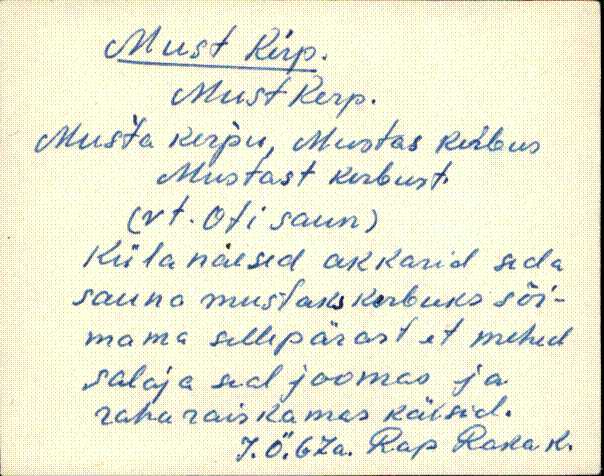 Must Kirp.
Must Kerp.
Musta kerpu, Mustas kerbus
Mustast kerbust.
(vt. Oti saun)
Küla näesed akkasid seda
sauna mustaks kerbuks sõi-
mama sellepärast et mehed
salaja seal joomas ja
raha raiskamas käisid.
J. Ö. 67a. Rap Raka k.